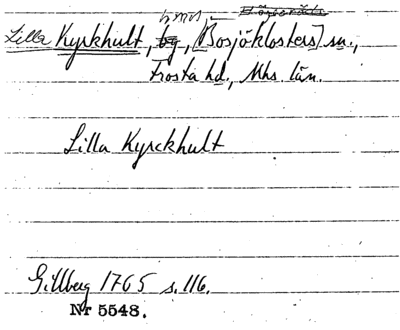 hmd,
Lilla Kyrkhult, by, [Bosjöklosters] sn.,
Frosta hd., Mhs. län.
Lilla Kyrckhult
Gillberg 1765 s. 116.
Nr 5548.